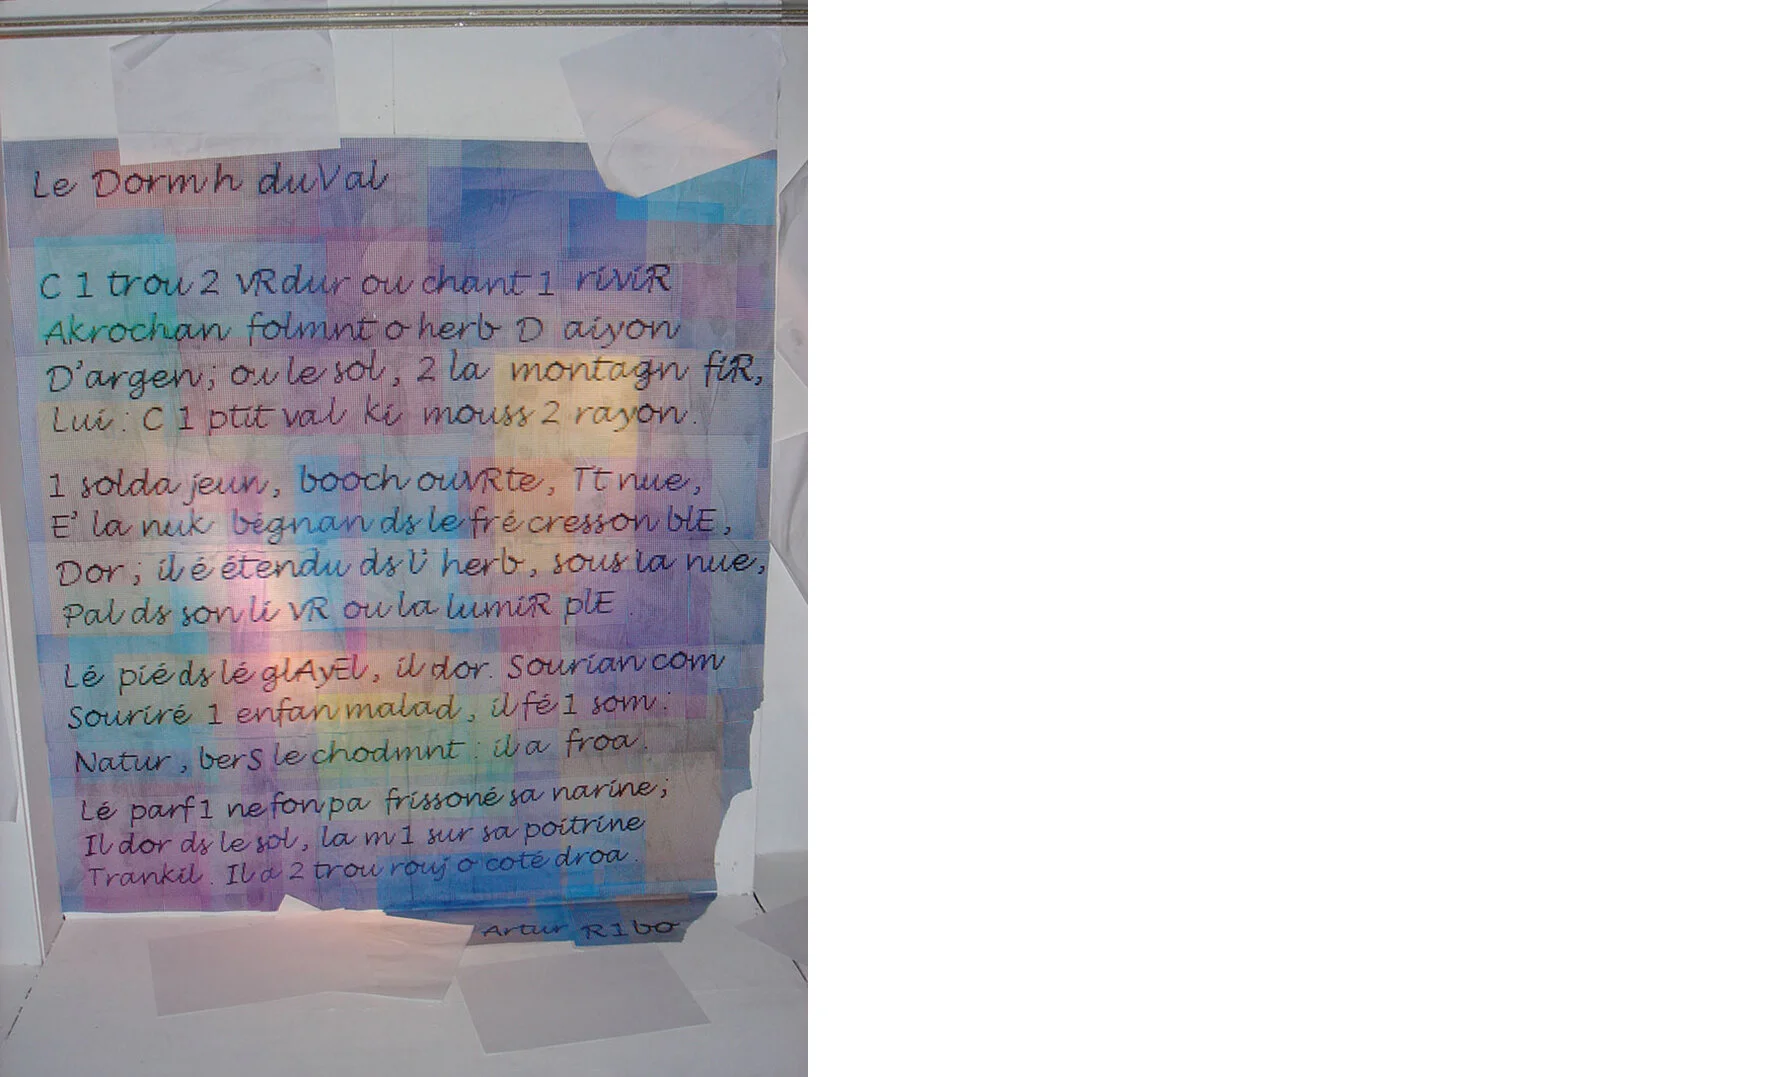 Le Dormh du Val
C 1 trou 2 vRdur ou chant 1 riviR
Akrochan folmnt o herb D aiyon
D'argen; ou le sol, 2 la montagn fiR,
Lui : C 1 ptit val ki mouss 2 rayon.
1 solda jeun, booch ouvRte, Tt nue,
E' la nuk bégnan ds le fré cresson blE,
Dor ; il é étendu ds l' herb, sous la nue,
Pal ds son li vR ou la lumiR plE.
Lé pié ds lé glAyEl, il dor. Sourian com
Souriré 1 enfan malad, il fé 1 som :
Natur, berS le chodmnt : il a froa.
Lé parf1 ne fon pa frissoné sa narine;
Il dor ds le sol, la m1 sur sa poitrine
Trankil. Il a 2 trou rouj o coté droa.
Artur R1bo